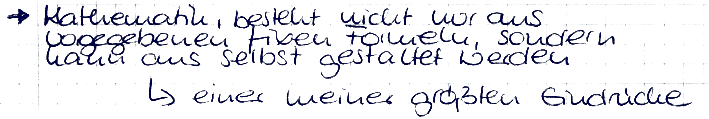 → Mathematik, besteht nicht nur aus
vogegebenen fixen Formeln, sondern
kann aus selbst gestaltet werden
↳ einer meiner größten Eindrücke